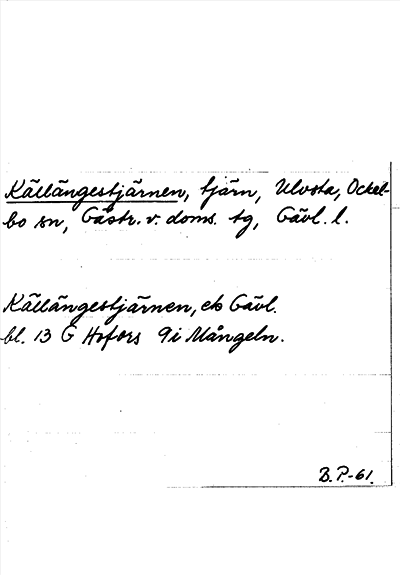 Källängestjärnen, tjärn, Ulvsta, Ockel-
bo sn, Gästr. v. doms. tg, Gävl. l.
Källängestjärnen, ek Gävl.
bl. 13 G Hofors 9i Mången.
B. P. -61.